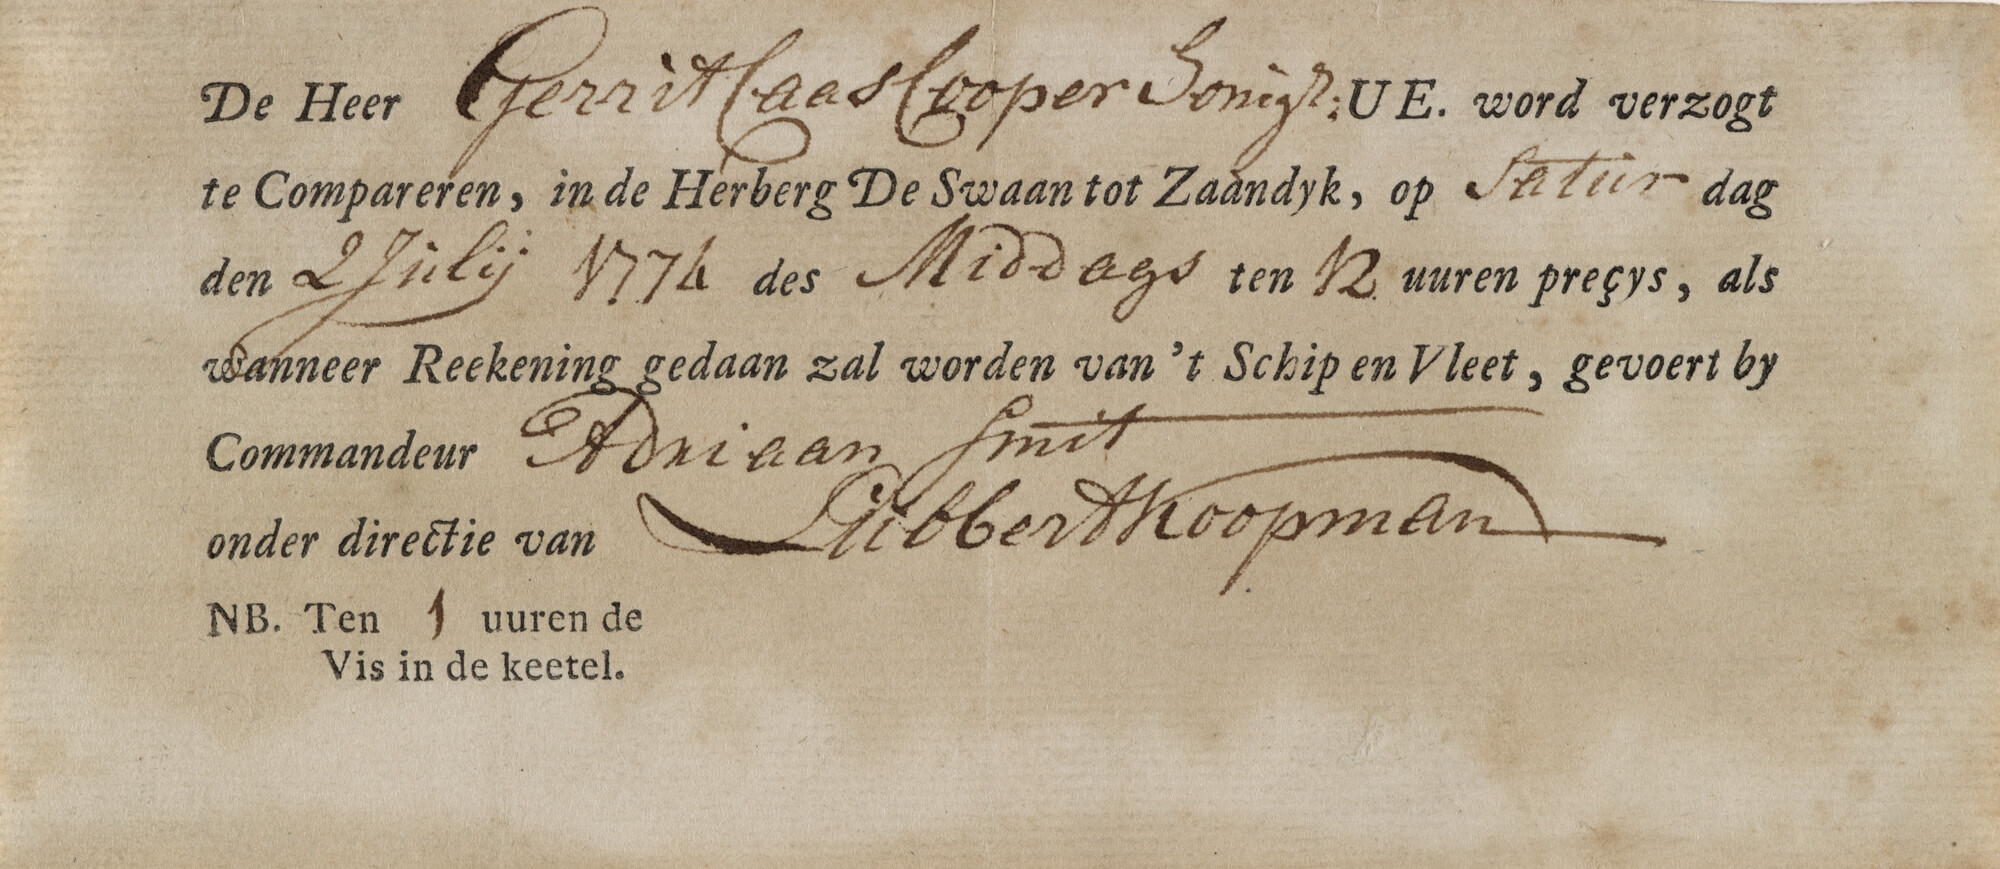 De Heer Gerrit Claas Cooper Honigh; UE. word verzogt
te Compareren, in de Herberg De Swaan tot Zaandyk, op Satur dag
den 2 Julij 1774 des Middags ten 12 uuren preçys, als
wanneer Reekening gedaan zal worden van 't Schip en Vleet, gevoert by
Commandeur Adriaan Smit
onder directie van Lubbert Koopman
NB. Ten 1 uuren de
Vis in de keetel.